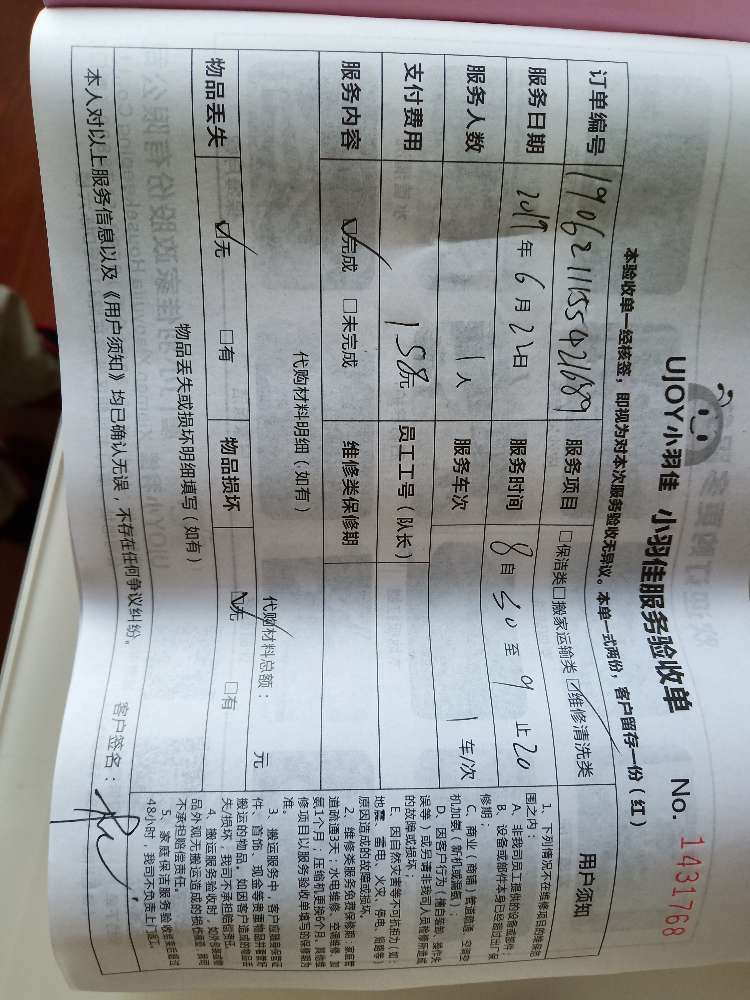 UJOY小羽佳 小羽佳服务验收单 No. 1431768
本验收单一经核签，即视为对本次服务验收无异议。本单一式两份，客户留存一份（红）
订单编号 服务项目 □保洁类□搬家运输类☑维修清洗类
服务日期 2019年6月22日 服务时间 8自50至9止20
服务人数 1人 服务车次 1车/次
支付费用 158元 员工工号（队长）
服务内容 ☑完成 □未完成 维修类保修期
代购材料明细（如有）
代购材料总额： 元
物品丢失 ☑无 □有 物品损坏 ☑无 □有
物品丢失或损坏明细填写（如有）
本人对以上服务信息以及《用户须知》均已确认无误，不存在任何争议纠纷。 客户签名：
用户须知
1、下列情况不在维修项目的维保范
围之内：
A、非我司员工提供的设备或部件；
B、设备或部件本身已经超过出厂保
修期；
C、商业（商铺）管道疏通、空调空
机加氨（新机或漏氨）；
D、因客户行为（擅自装卸、操作失
误等）或另请非我司人员检修所造成
的故障或损坏；
E、因自然灾害等不可抗拒力（如：
地震、雷电、火灾、停电、短路等）
原因造成的故障或损坏。
2、维修类服务免费保修期：家庭管
道疏通3天；水电维修、空调维修、加
氨1个月；压缩机更换6个月，其他维
修项目以服务验收单填写的保修期为
准。
3、搬运服务中，客户应随身保管证
件、首饰、现金等贵重物品并看管好
搬运的物品，如因客户造成的物品丢
失/损坏，我司不承担赔偿责任。
4、搬运服务验收时，
品外观无搬运造成的损伤痕迹，我司
不承担赔偿责任。
5、家庭保洁服务验收结束后超过
48小时，我司不负责上门返工。